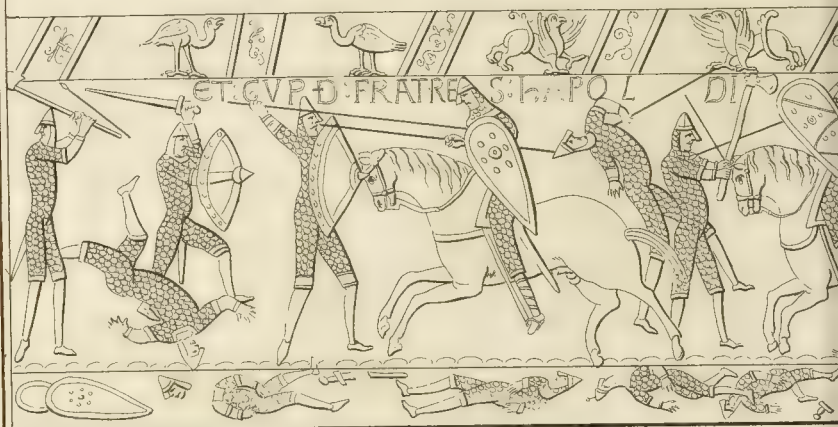 ET : GVPÐ : FRATRES : POL DI